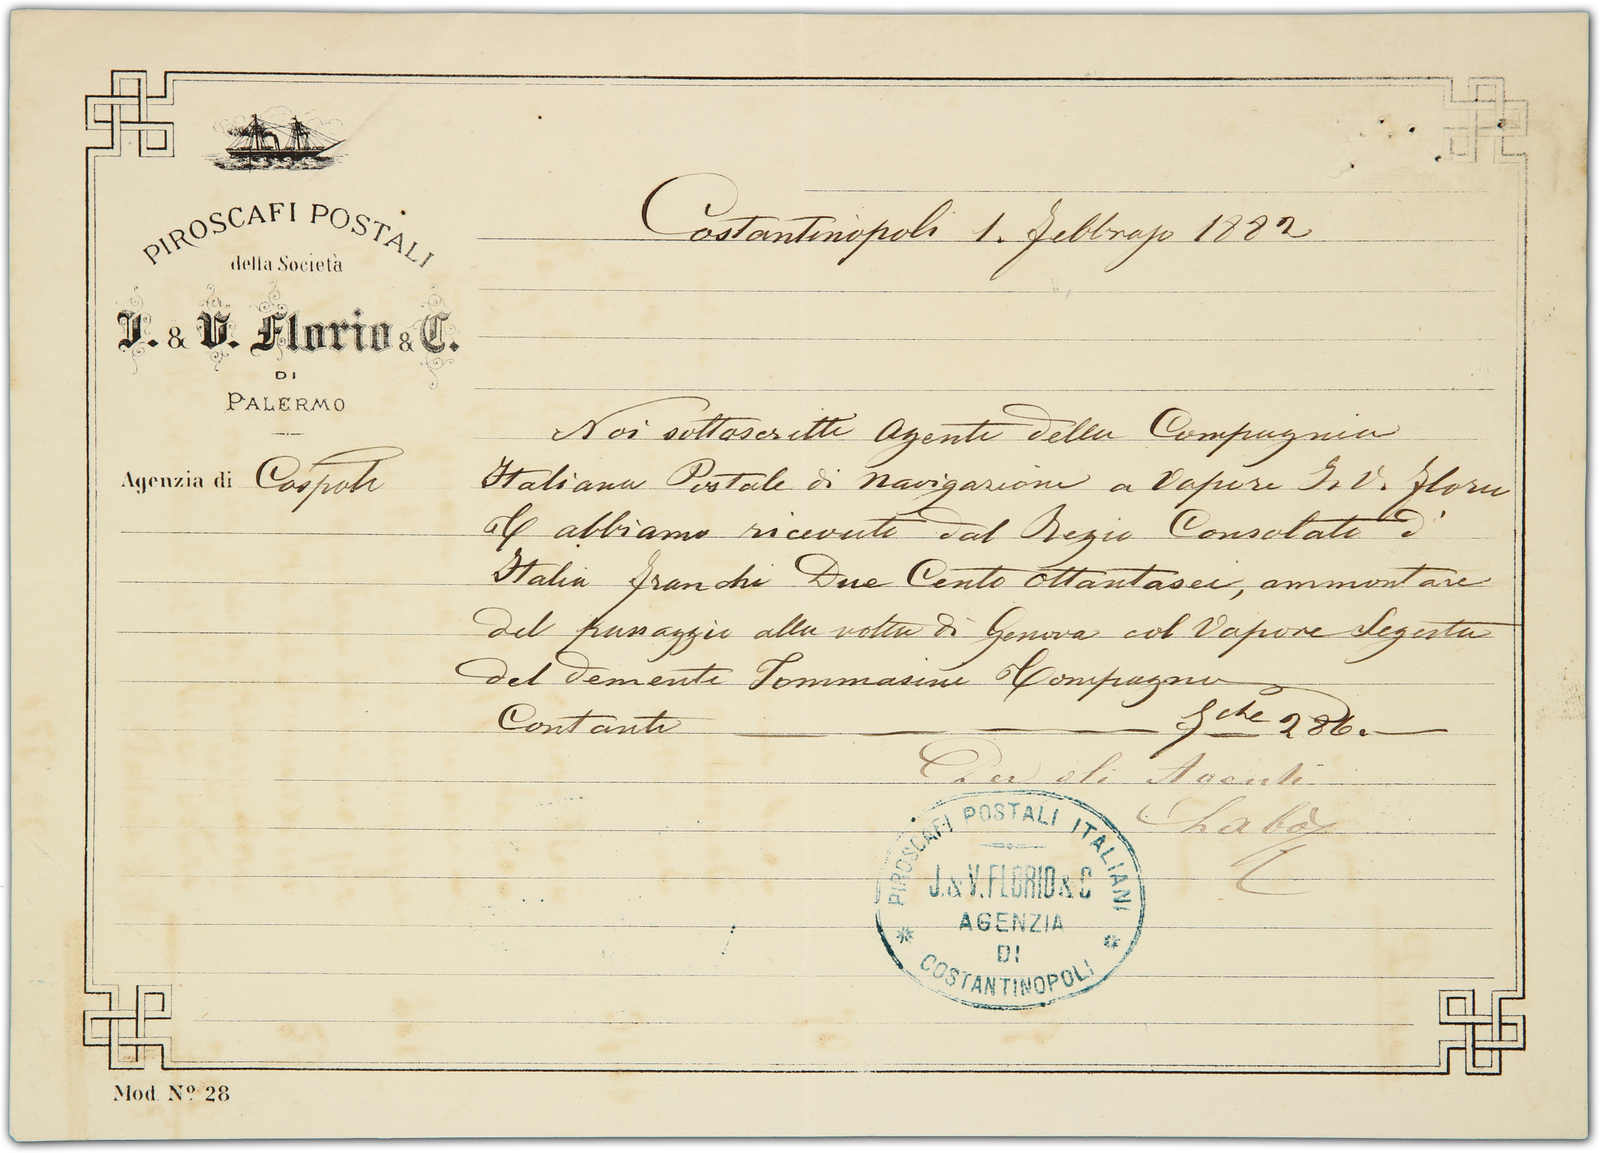 PIROSCAFI POSTALI
della Società
I. & V. Florio & C.
DI
PALERMO
Agenzia di Cospoli
Costantinopoli 1. Febbrajo 1882
Noi sottoscritti Agenti della Compagnia
Italiana Postale di Navigazione a Vapore I. V. Florio
& C abbiamo ricevuto dal Regio Consolato d'
Italia franchi Due Cento Ottantasei, ammontare
del passaggio alla volta di Genova col Vapore Segesta
del demente Tommasini & Compagno
Contanti Fchi 286.
Per gli Agenti
PIROSCAFI POSTALI ITALIANI
J. & V. FLORIO & C
AGENZIA
DI
COSTANTINOPOLI
Mod. Nº 28